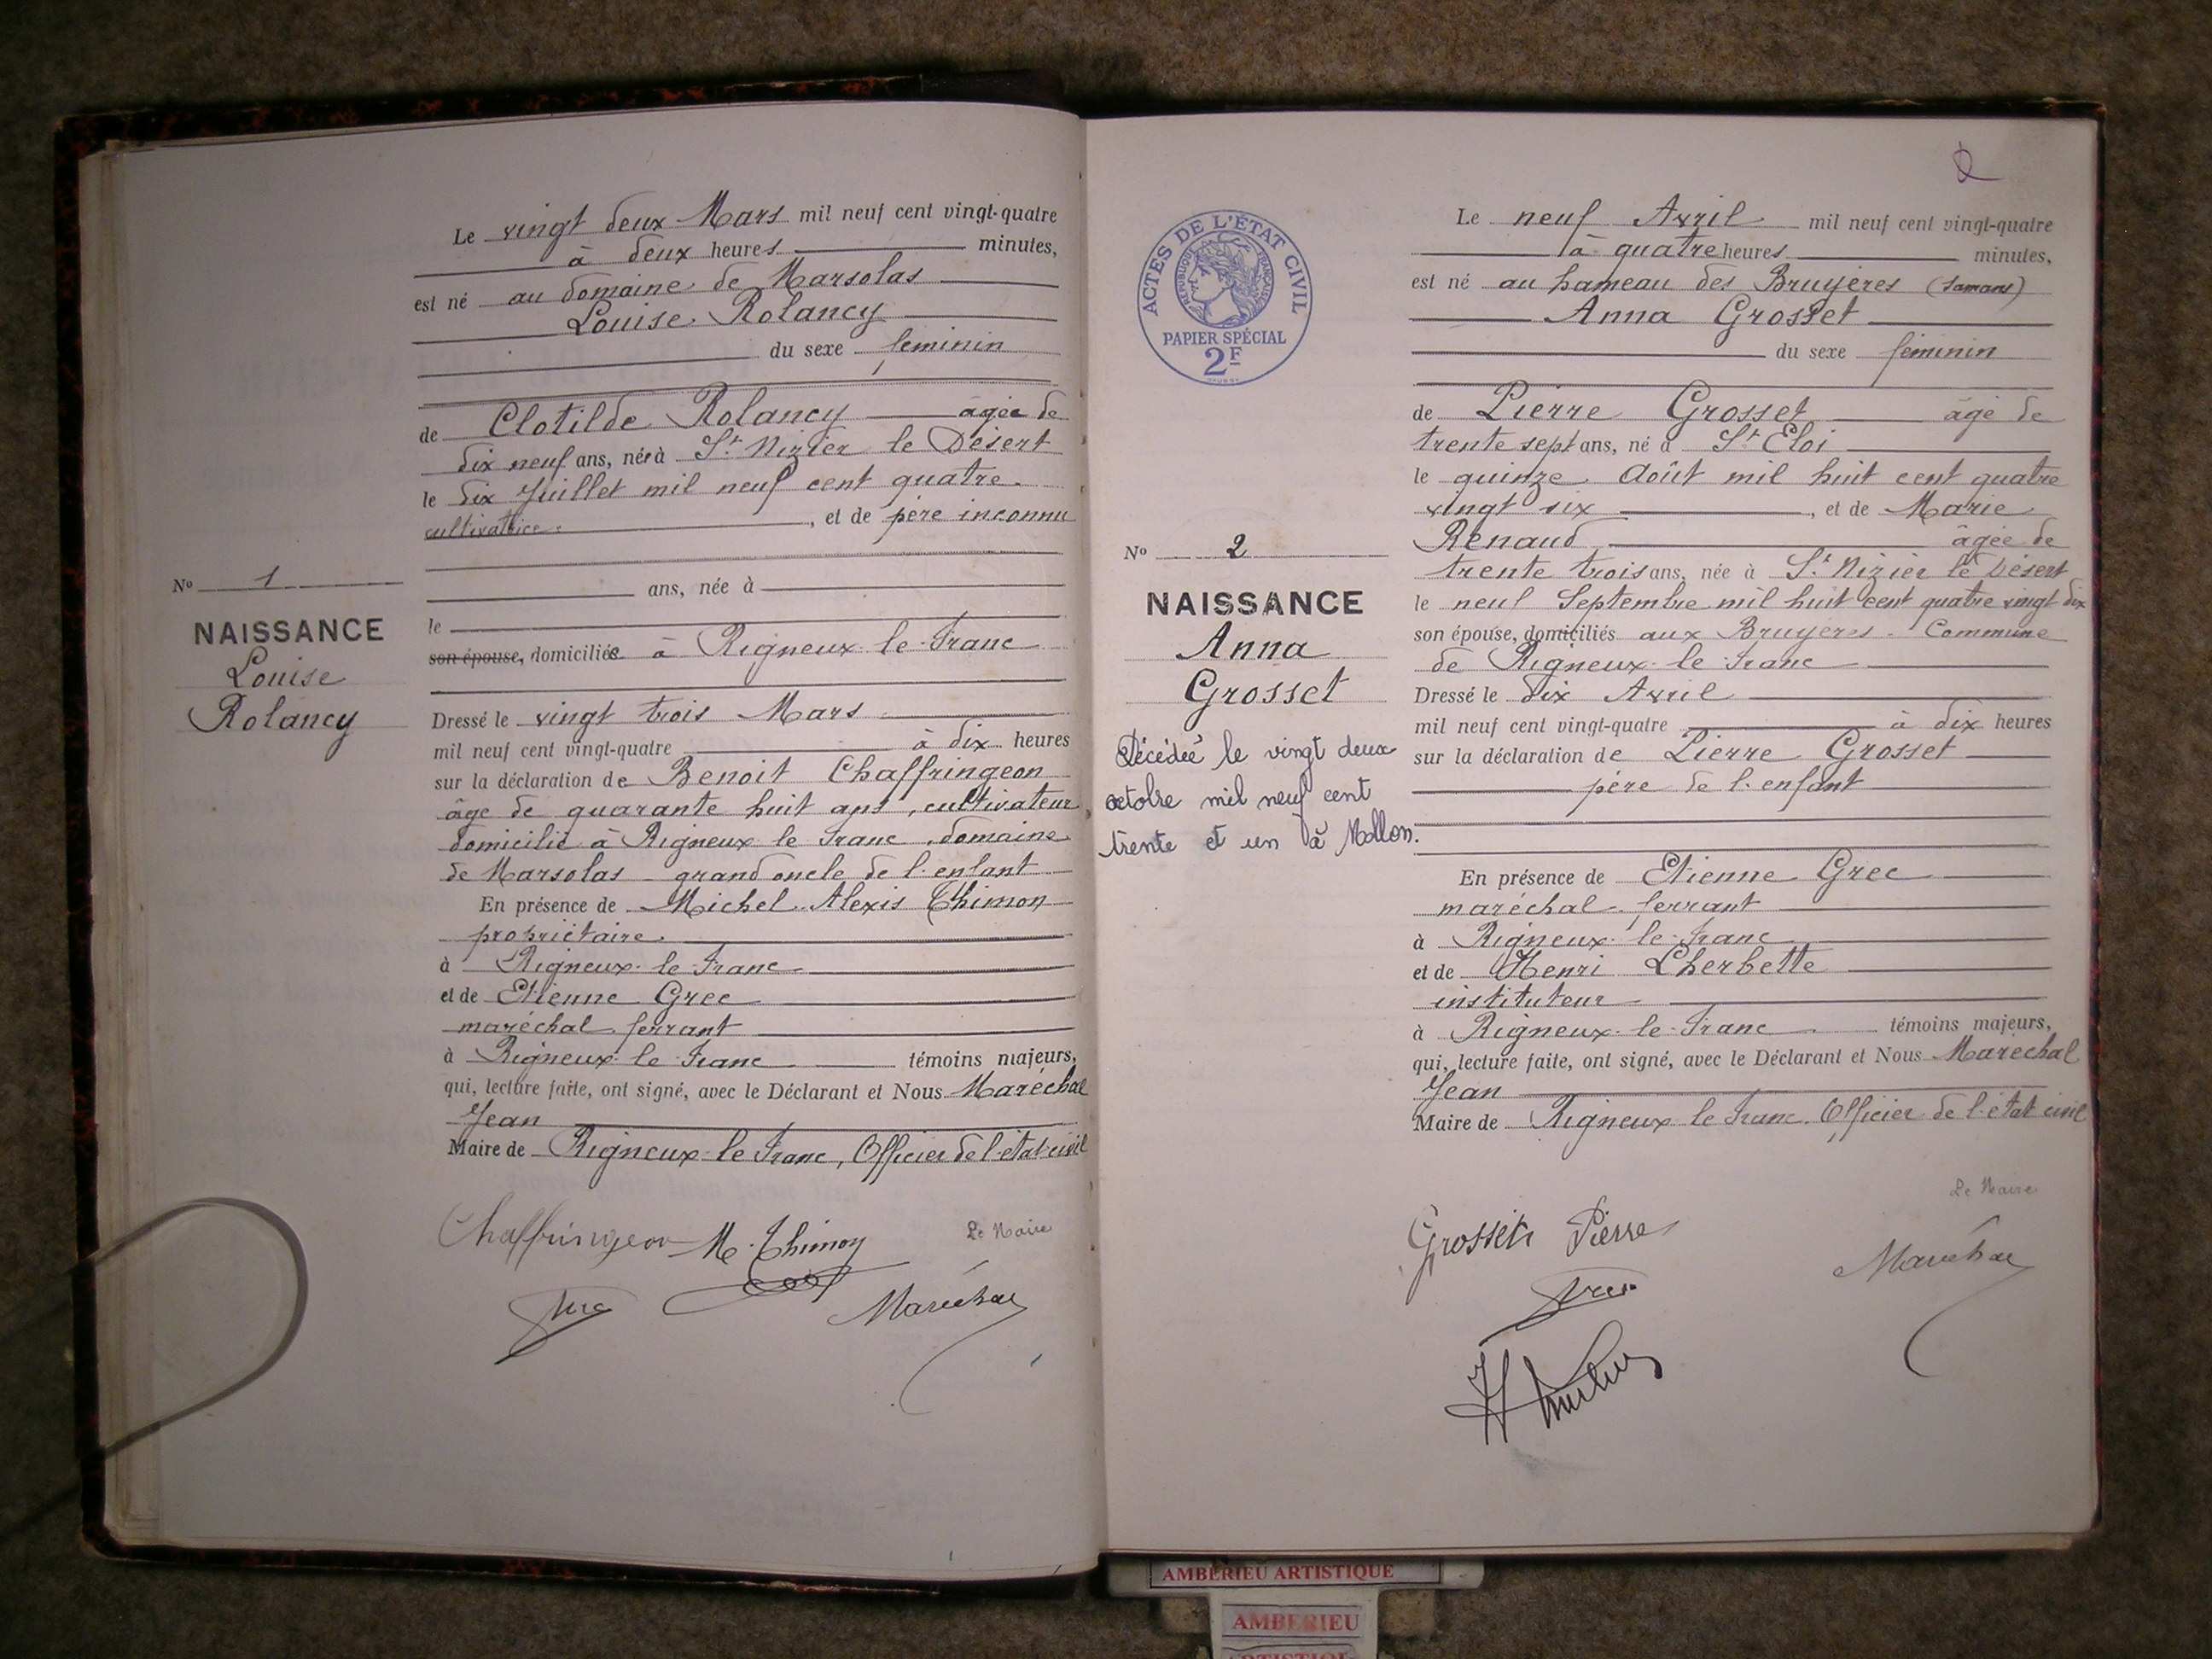 Le vingt deux Mars mil neuf cent vingt-quatre
à deux heures minutes,
est né au domaine de Marsolas
Louise Rolancy
du sexe féminin
de Clotilde Rolancy âgée de
dix neuf ans, née à St Nizier le Désert
le dix Juillet mil neuf cent quatre
cultivatrice, et de père inconnu
ans, née à
le
son épouse, domiciliée à Rigneux-le-Franc
Dressé le vingt trois Mars
mil neuf cent vingt-quatre à dix heures
sur la déclaration de Benoit Chaffringeon
âgé de quarante huit ans, cultivateur,
domicilié à Rigneux le Franc, domaine
de Marsolas grand oncle de l'enfant
En présence de Michel Alexis Thimon
propriétaire
à Rigneux-le-Franc
et de Etienne Grec
maréchal ferrant
à Rigneux-le-Franc témoins majeurs,
qui, lecture faite, ont signé, avec le Déclarant et Nous Maréchal
Jean
Maire de Rigneux-le-Franc, Officier de l'état-civil
Chaffringeon M. Thimon Le Maire
Grec Maréchal
No 1
NAISSANCE
Louise
Rolancy
2
ACTES DE L'ÉTAT CIVIL
RÉPUBLIQUE FRANÇAISE
PAPIER SPÉCIAL
2F
No 2
NAISSANCE
Anna
Grosset
Décédée le vingt deux
octobre mil neuf cent
trente et un à Mollon.
Le neuf Avril mil neuf cent vingt-quatre
à quatre heures minutes,
est né au hameau des Bruyères
Anna Grosset
du sexe féminin
de Pierre Grosset âgé de
trente sept ans, né à St Eloi
le quinze Août mil huit cent quatre
vingt six, et de Marie
Renaud âgée de
trente trois ans, née à St Nizier le Désert
le neuf Septembre mil huit cent quatre vingt dix
son épouse, domiciliés aux Bruyères - Commune
de Rigneux-le-Franc
Dressé le dix Avril
mil neuf cent vingt-quatre à dix heures
sur la déclaration de Pierre Grosset
père de l'enfant
En présence de Etienne Grec
maréchal-ferrant
à Rigneux-le-Franc
et de Henri Lherbette
instituteur
à Rigneux-le-Franc témoins majeurs,
qui, lecture faite, ont signé, avec le Déclarant et Nous Maréchal
Jean
Maire de Rigneux le Franc. Officier de l'état civil
Le Maire
Grosset Pierre Maréchal
Grec
AMBÉRIEU ARTISTIQUE
AMBERIEU
ARTISTIQUE